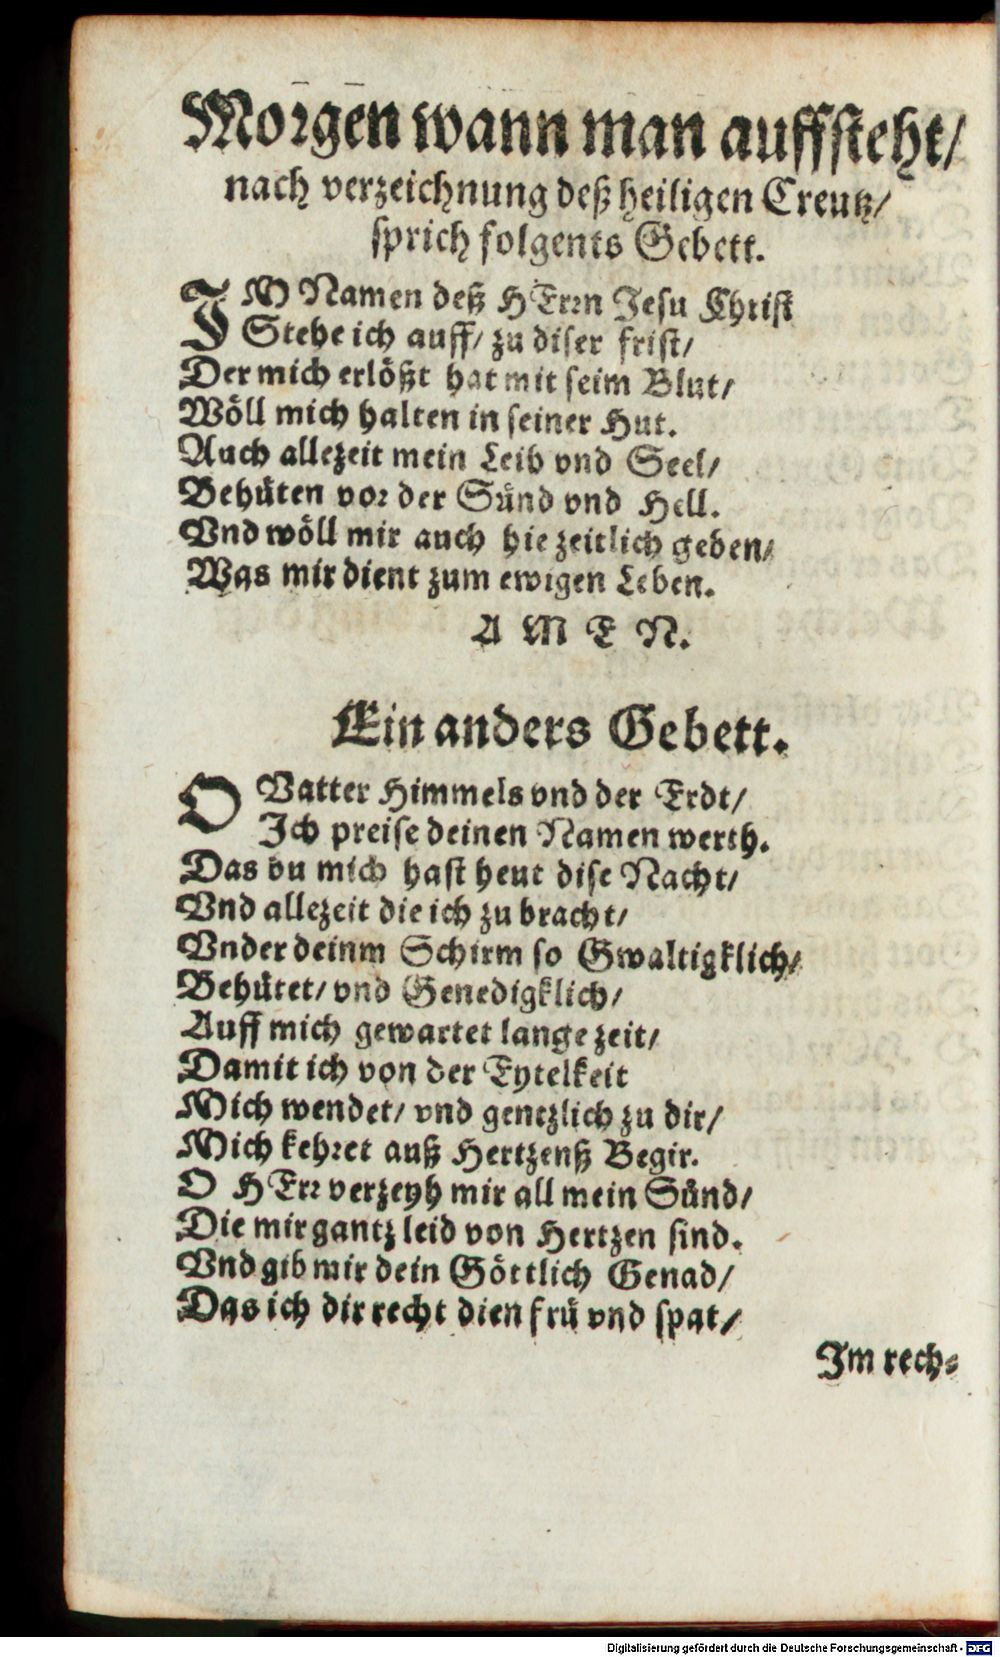 Morgen wann man auffsteht/
nach verzeichnung deß heiligen Creutz/
sprich folgents Gebett.
IM Namen deß HErrn Jesu Christ
Stehe ich auff/ zu diser frist/
Der mich erlößt hat mit seim Blut/
Wöll mich halten in seiner Hut.
Auch allezeit mein Leib vnd Seel/
Behüten vor der Sünd vnd Hell.
Vnd wöll mir auch hie zeitlich geben/
Was mir dient zum ewigen Leben.
A M E N.
Ein anders Gebett.
O Vatter Himmels vnd der Erdt/
Ich preise deinen Namen werth.
Das du mich hast heut dise Nacht/
Vnd allezeit die ich zu bracht/
Vnder deinm Schirm so Gwaltigklich/
Behütet/ vnd Genedigklich/
Auff mich gewartet lange zeit/
Damit ich von der Eytelkeit
Mich wendet/ vnd gentzlich zu dir/
Mich kehret auß Hertzenß Begir.
O HErr verzeyh mir all mein Sünd/
Die mir gantz leid von Hertzen sind.
Vnd gib mir dein Göttlich Genad/
Das ich dir recht dien frü vnd spat/
Im rech-
Digitalisierung gefördert durch die Deutsche Forschungsgemeinschaft - DFG